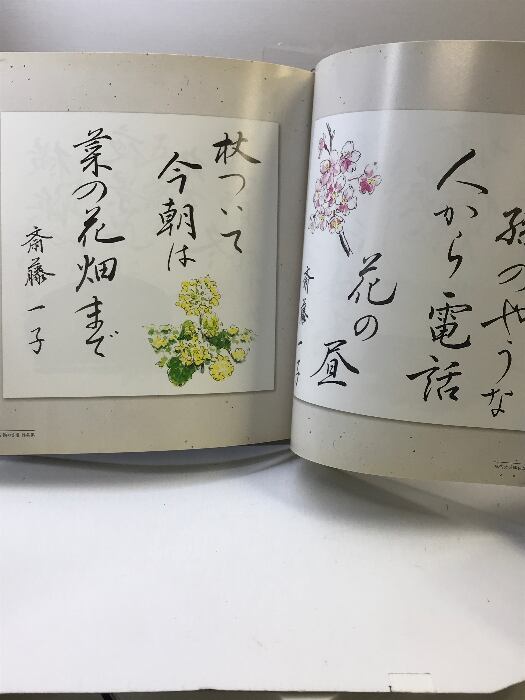 孫のやうな
人から電話
花の
昼
斎藤一子
杖ついて
今朝は
菜の花畑まで
斎藤一子